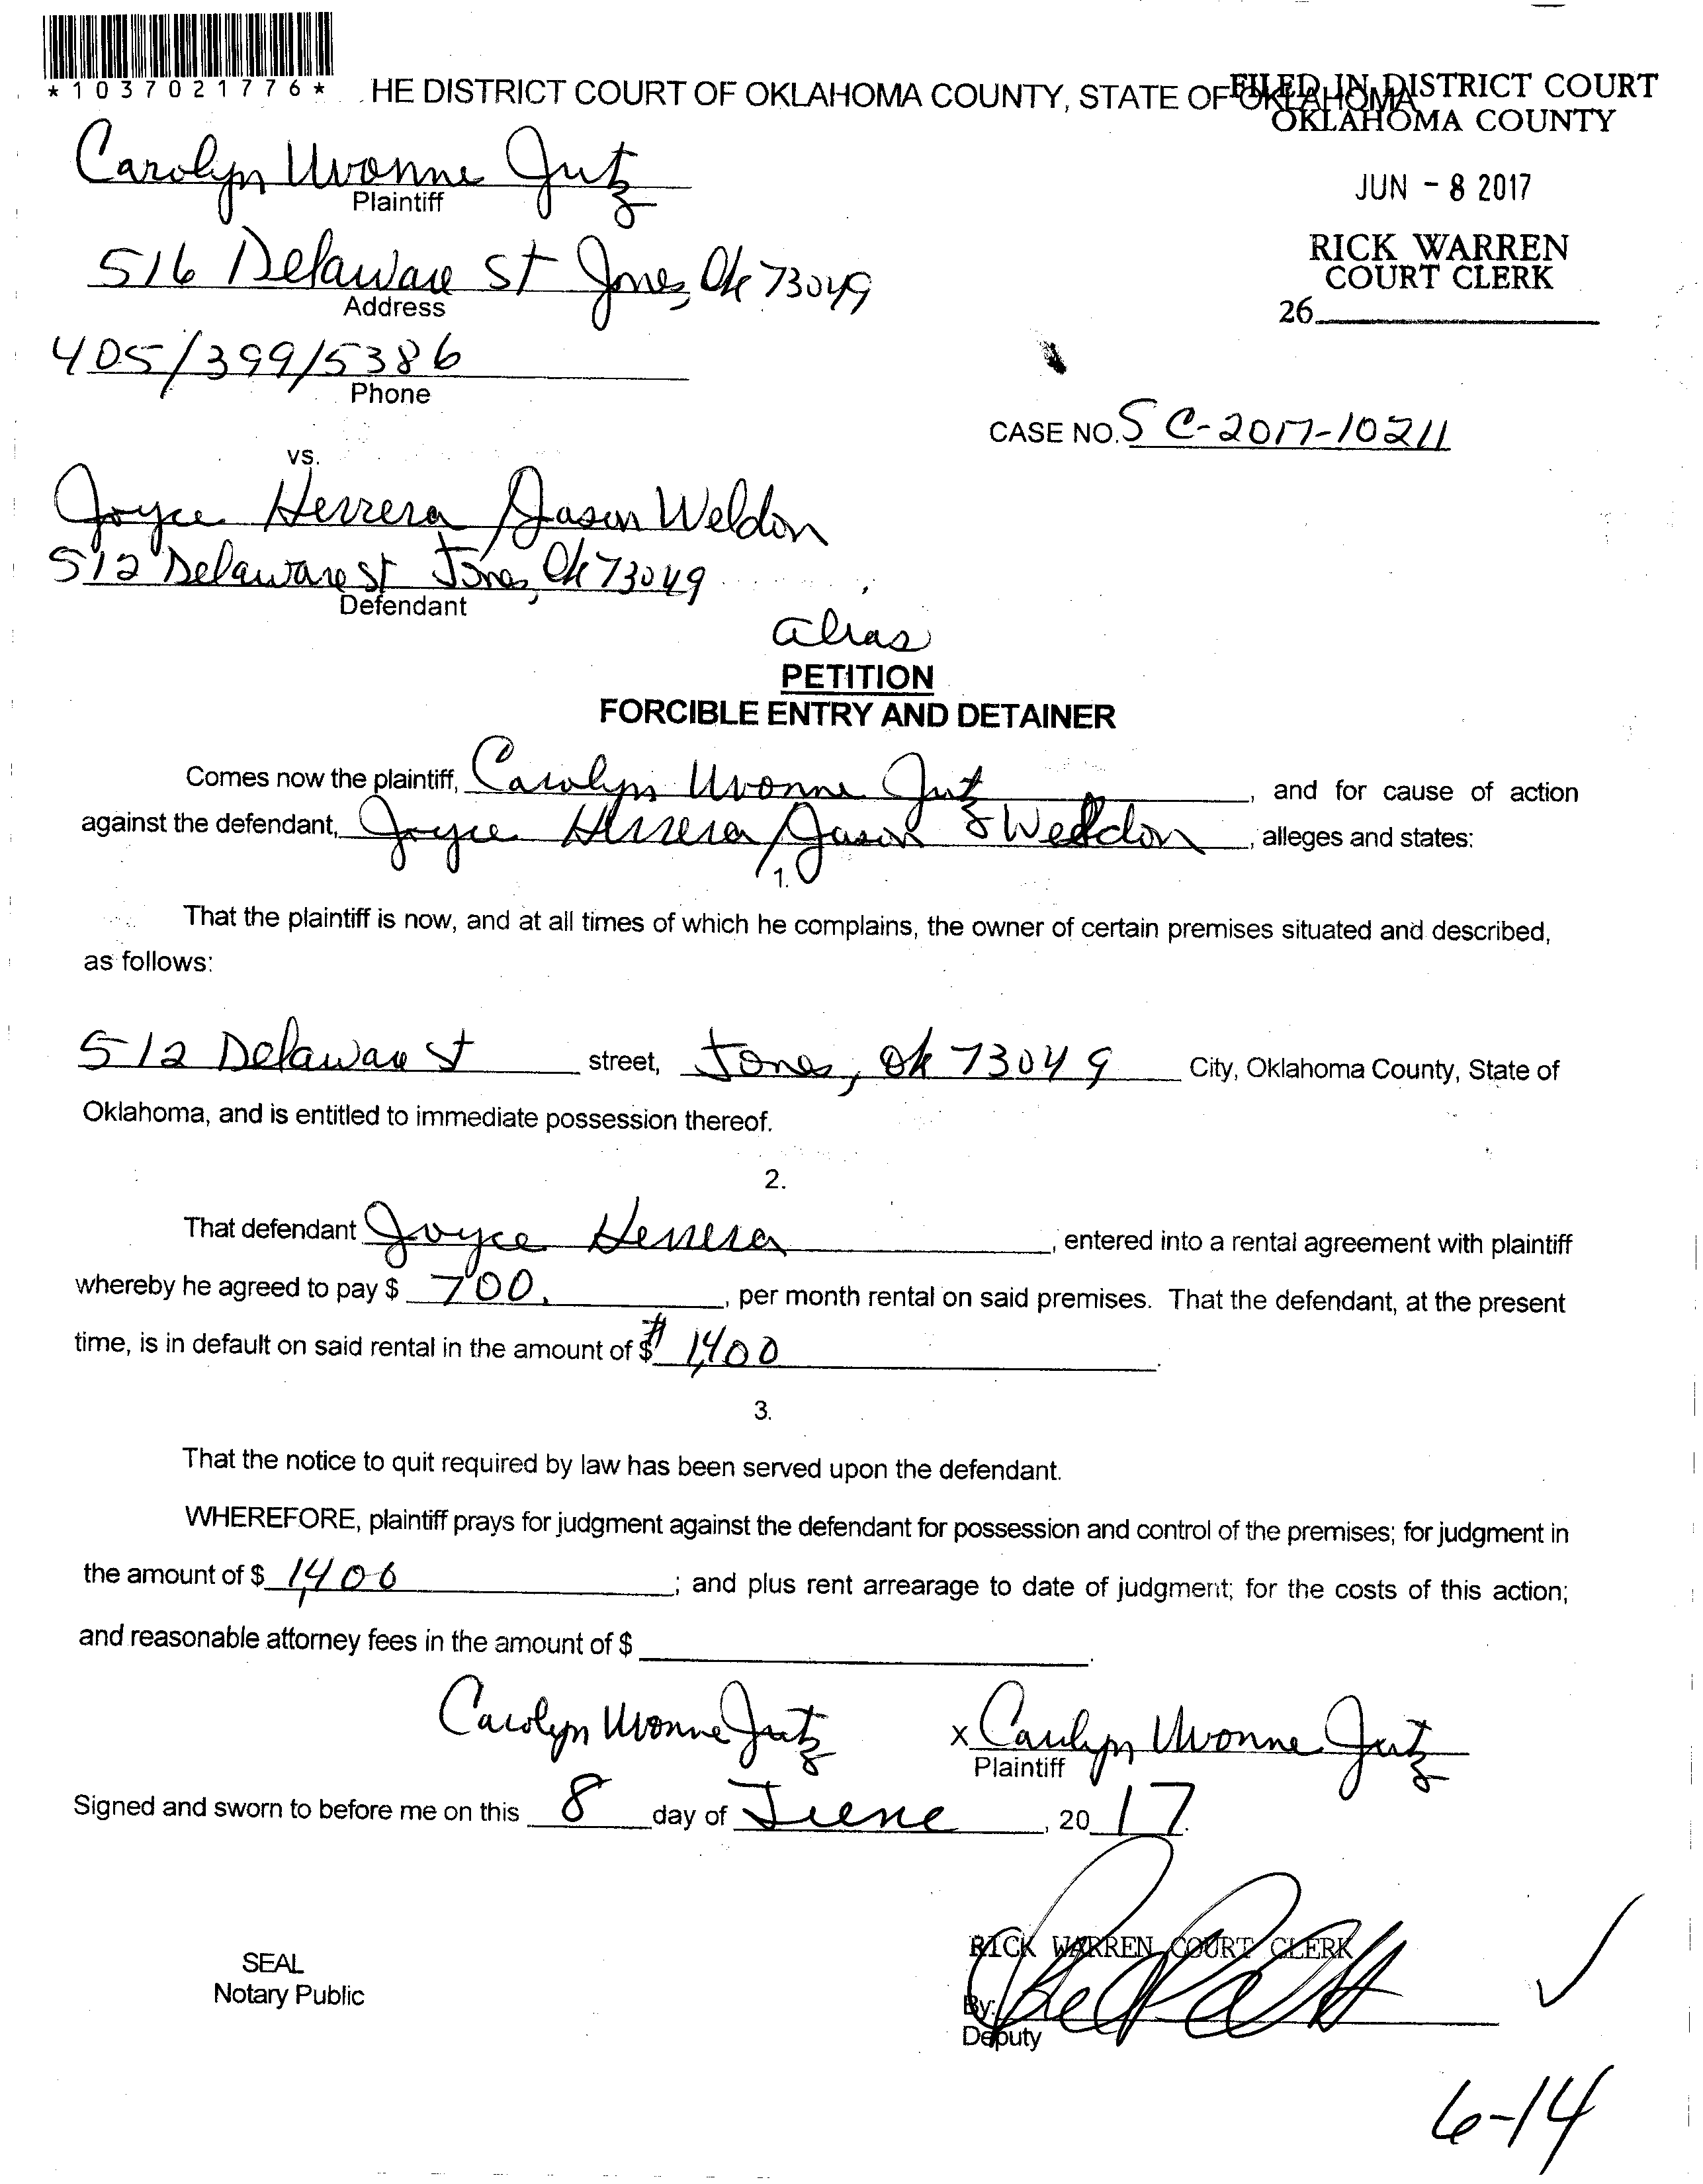 *1037021776*
HE DISTRICT COURT OF OKLAHOMA COUNTY, STATE OF OKLAHOMA
FILED IN DISTRICT COURT
OKLAHOMA COUNTY
JUN - 8 2017
RICK WARREN
COURT CLERK
26
Carolyn Uvonne Jutz
Plaintiff
516 Delaware St Jones, Ok 73049
Address
405/399/5386
Phone
CASE NO. SC-2017-10211
vs.
Joyce Herrera / Jason Weldon
512 Delaware St Jones, Ok 73049
Defendant
alias
PETITION
FORCIBLE ENTRY AND DETAINER
Comes now the plaintiff, Carolyn Uvonne Jutz, and for cause of action
against the defendant, Joyce Herrera / Jason Weldon, alleges and states:
1.
That the plaintiff is now, and at all times of which he complains, the owner of certain premises situated and described,
as follows:
512 Delaware St street, Jones, Ok 73049 City, Oklahoma County, State of
Oklahoma, and is entitled to immediate possession thereof.
2.
That defendant Joyce Herrera, entered into a rental agreement with plaintiff
whereby he agreed to pay $ 700., per month rental on said premises. That the defendant, at the present
time, is in default on said rental in the amount of $ 1,400.
3.
That the notice to quit required by law has been served upon the defendant.
WHEREFORE, plaintiff prays for judgment against the defendant for possession and control of the premises; for judgment in
the amount of $ 1,400; and plus rent arrearage to date of judgment; for the costs of this action;
and reasonable attorney fees in the amount of $ .
Carolyn Uvonne Jutz x Carolyn Uvonne Jutz
Plaintiff
Signed and sworn to before me on this 8 day of June, 2017.
SEAL
Notary Public
RICK WARREN COURT CLERK
By:
Deputy
6-14